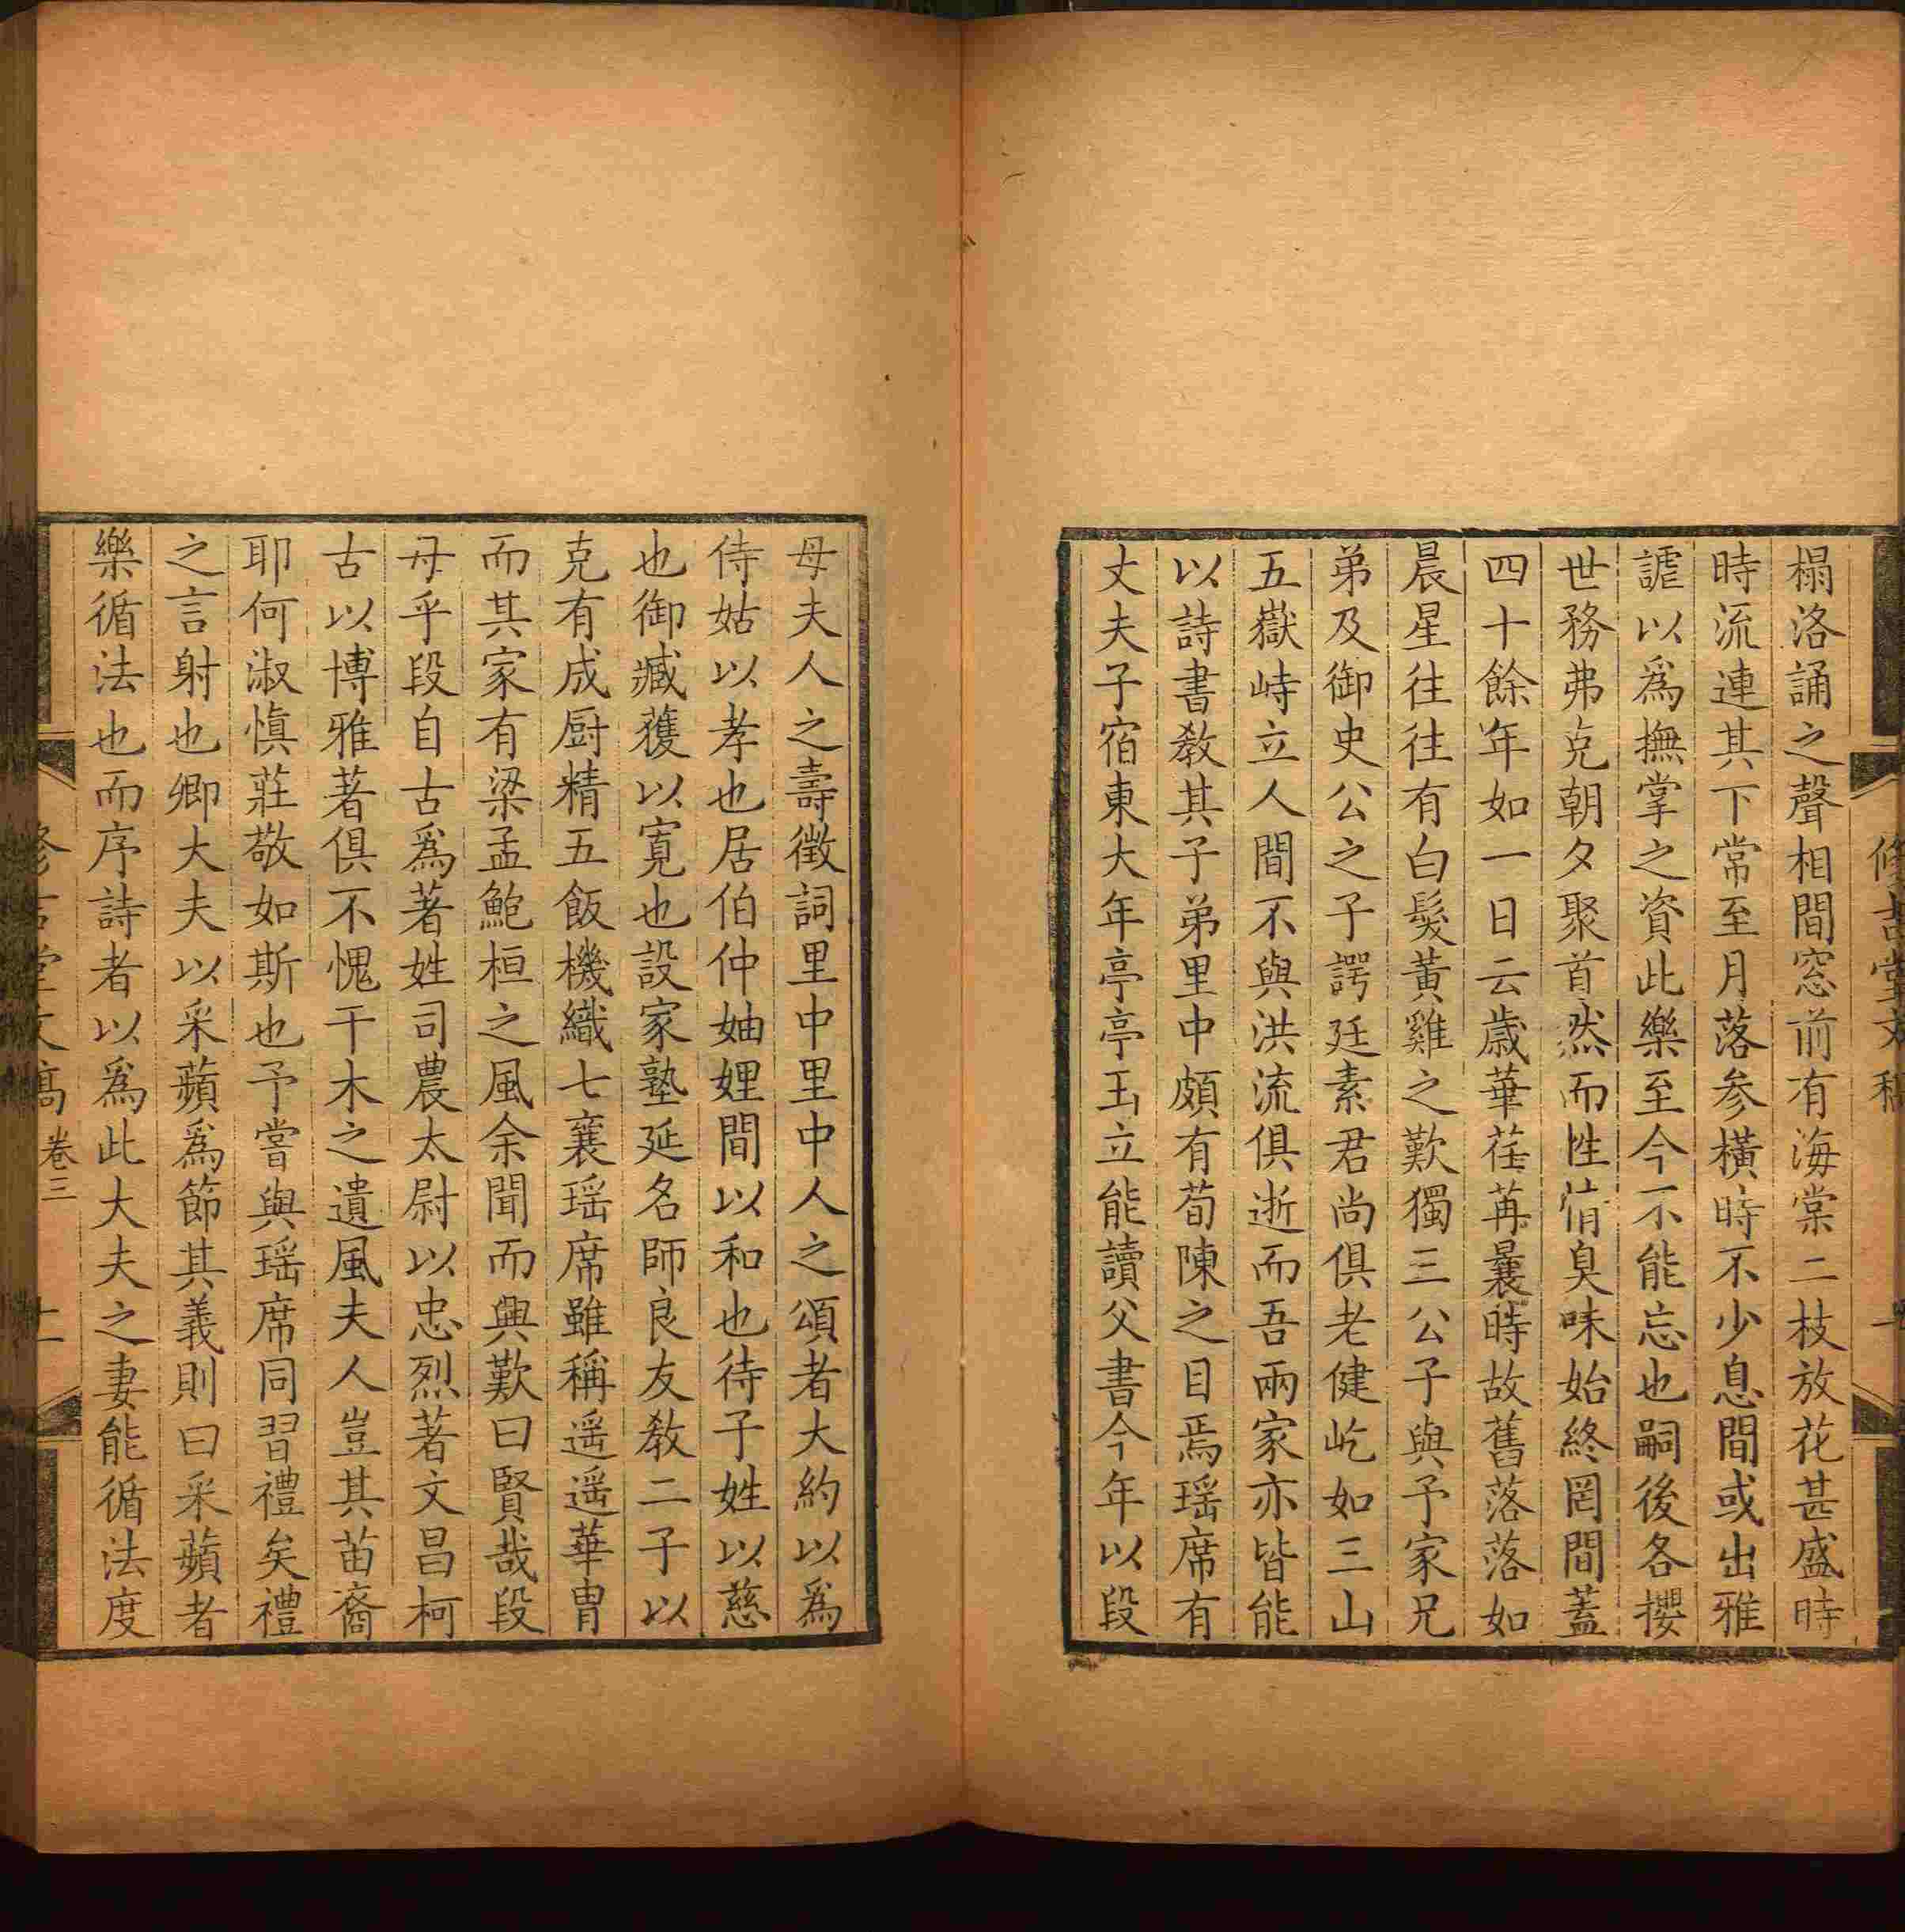 榻洛誦之聲相間窓前有海棠二枝放花甚盛時
時流連其下常至月落参橫時不少息間或出雅
謔以爲撫掌之資此樂至今不能忘也嗣後各攖
世務弗克朝夕聚首然而性情臭味始終罔間蓋
四十餘年如一日云歲華荏苒曩時故舊落落如
晨星往往有白髮黃雞之歎獨三公子與予家兄
弟及御史公之子諤廷素君尚俱老健屹如三山
五嶽峙立人間不與洪流俱逝而吾兩家亦皆能
以詩書教其子弟里中頗有荀陳之目焉瑶席有
丈夫子宿東大年亭亭玉立能讀父書今年以段
母夫人之壽徵詞里中里中人之頌者大約以爲
侍姑以孝也居伯仲妯娌間以和也待子姓以慈
也御臧獲以寛也設家塾延名師良友教二子以
克有成厨精五飯機織七襄瑶席雖稱遥遥華胄
而其家有梁孟鮑桓之風余聞而興歎曰賢哉段
母乎段自古爲著姓司農太尉以忠烈著文昌柯
古以博雅著俱不愧干木之遺風夫人豈其苗裔
耶何淑慎莊敬如斯也予嘗與瑶席同習禮矣禮
之言射也卿大夫以采蘋爲節其義則曰采蘋者
樂循法也而序詩者以爲此大夫之妻能循法度
修吉堂文稿 卷三